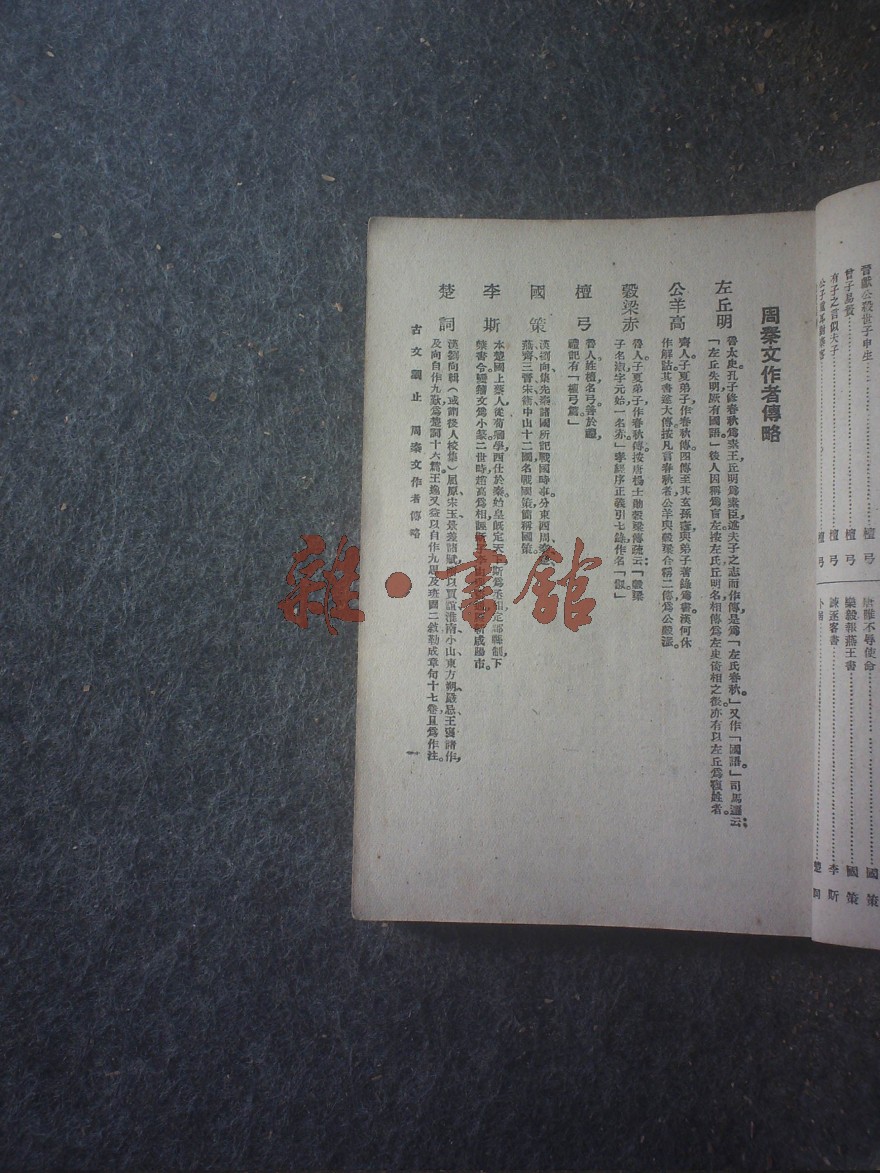 晉獻公殺世子申生……檀弓
曾子易簀……檀弓
有子之言似夫子……檀弓
唐雎不辱使命……國策
樂毅報燕王書……國策
諫逐客書……李斯
卜居……楚詞
周秦文作者傳略
左丘明
魯太史孔子修春秋爲素王丘明爲素臣述夫子之志而作傳是爲「左氏春秋。」又作「國語」司馬遷云:
「左丘失明厥有國語。」後人因稱爲盲左按左氏丘明名相傳爲左史倚相之後亦有以左丘爲複姓者。
公羊高
齊人。子夏弟子作春秋傳四傳至其玄孫壽與弟子著錄爲書漢何休
作解詁其書遂大傳按凡言春秋者公羊與穀梁合稱二傳爲公穀
穀梁赤
魯人。子夏弟子作春秋傳按唐楊士勛穀梁傳疏云:「穀梁
子名淑字元始一名赤。」孝經序正義引七錄作名「俶。」
檀弓
魯人姓檀名弓善於禮,
禮記有「檀弓篇。」
國策
漢劉向集先秦諸國所記戰國時事。分東西周秦
燕齊三晉宋衞中山十二國名戰國策簡稱國策。
李斯
本楚國上蔡人,從荀卿學西仕於秦。始皇旣定天下斯爲丞相定郡縣制,下
禁書令變籀文爲小篆二世時趙高爲相,誣斯子李由
咸陽市。
楚詞
漢劉向輯(或謂後人校集)屈原宋玉景差諸賦
以賈誼淮南小山東方朔嚴忌王褒諸作,
及向自作九歎爲楚詞十六篇王逸又益以自作九思及班固二敘勒成章句十七卷且爲作注。
古文觀止 周秦文作者傳略
一
雜·書館